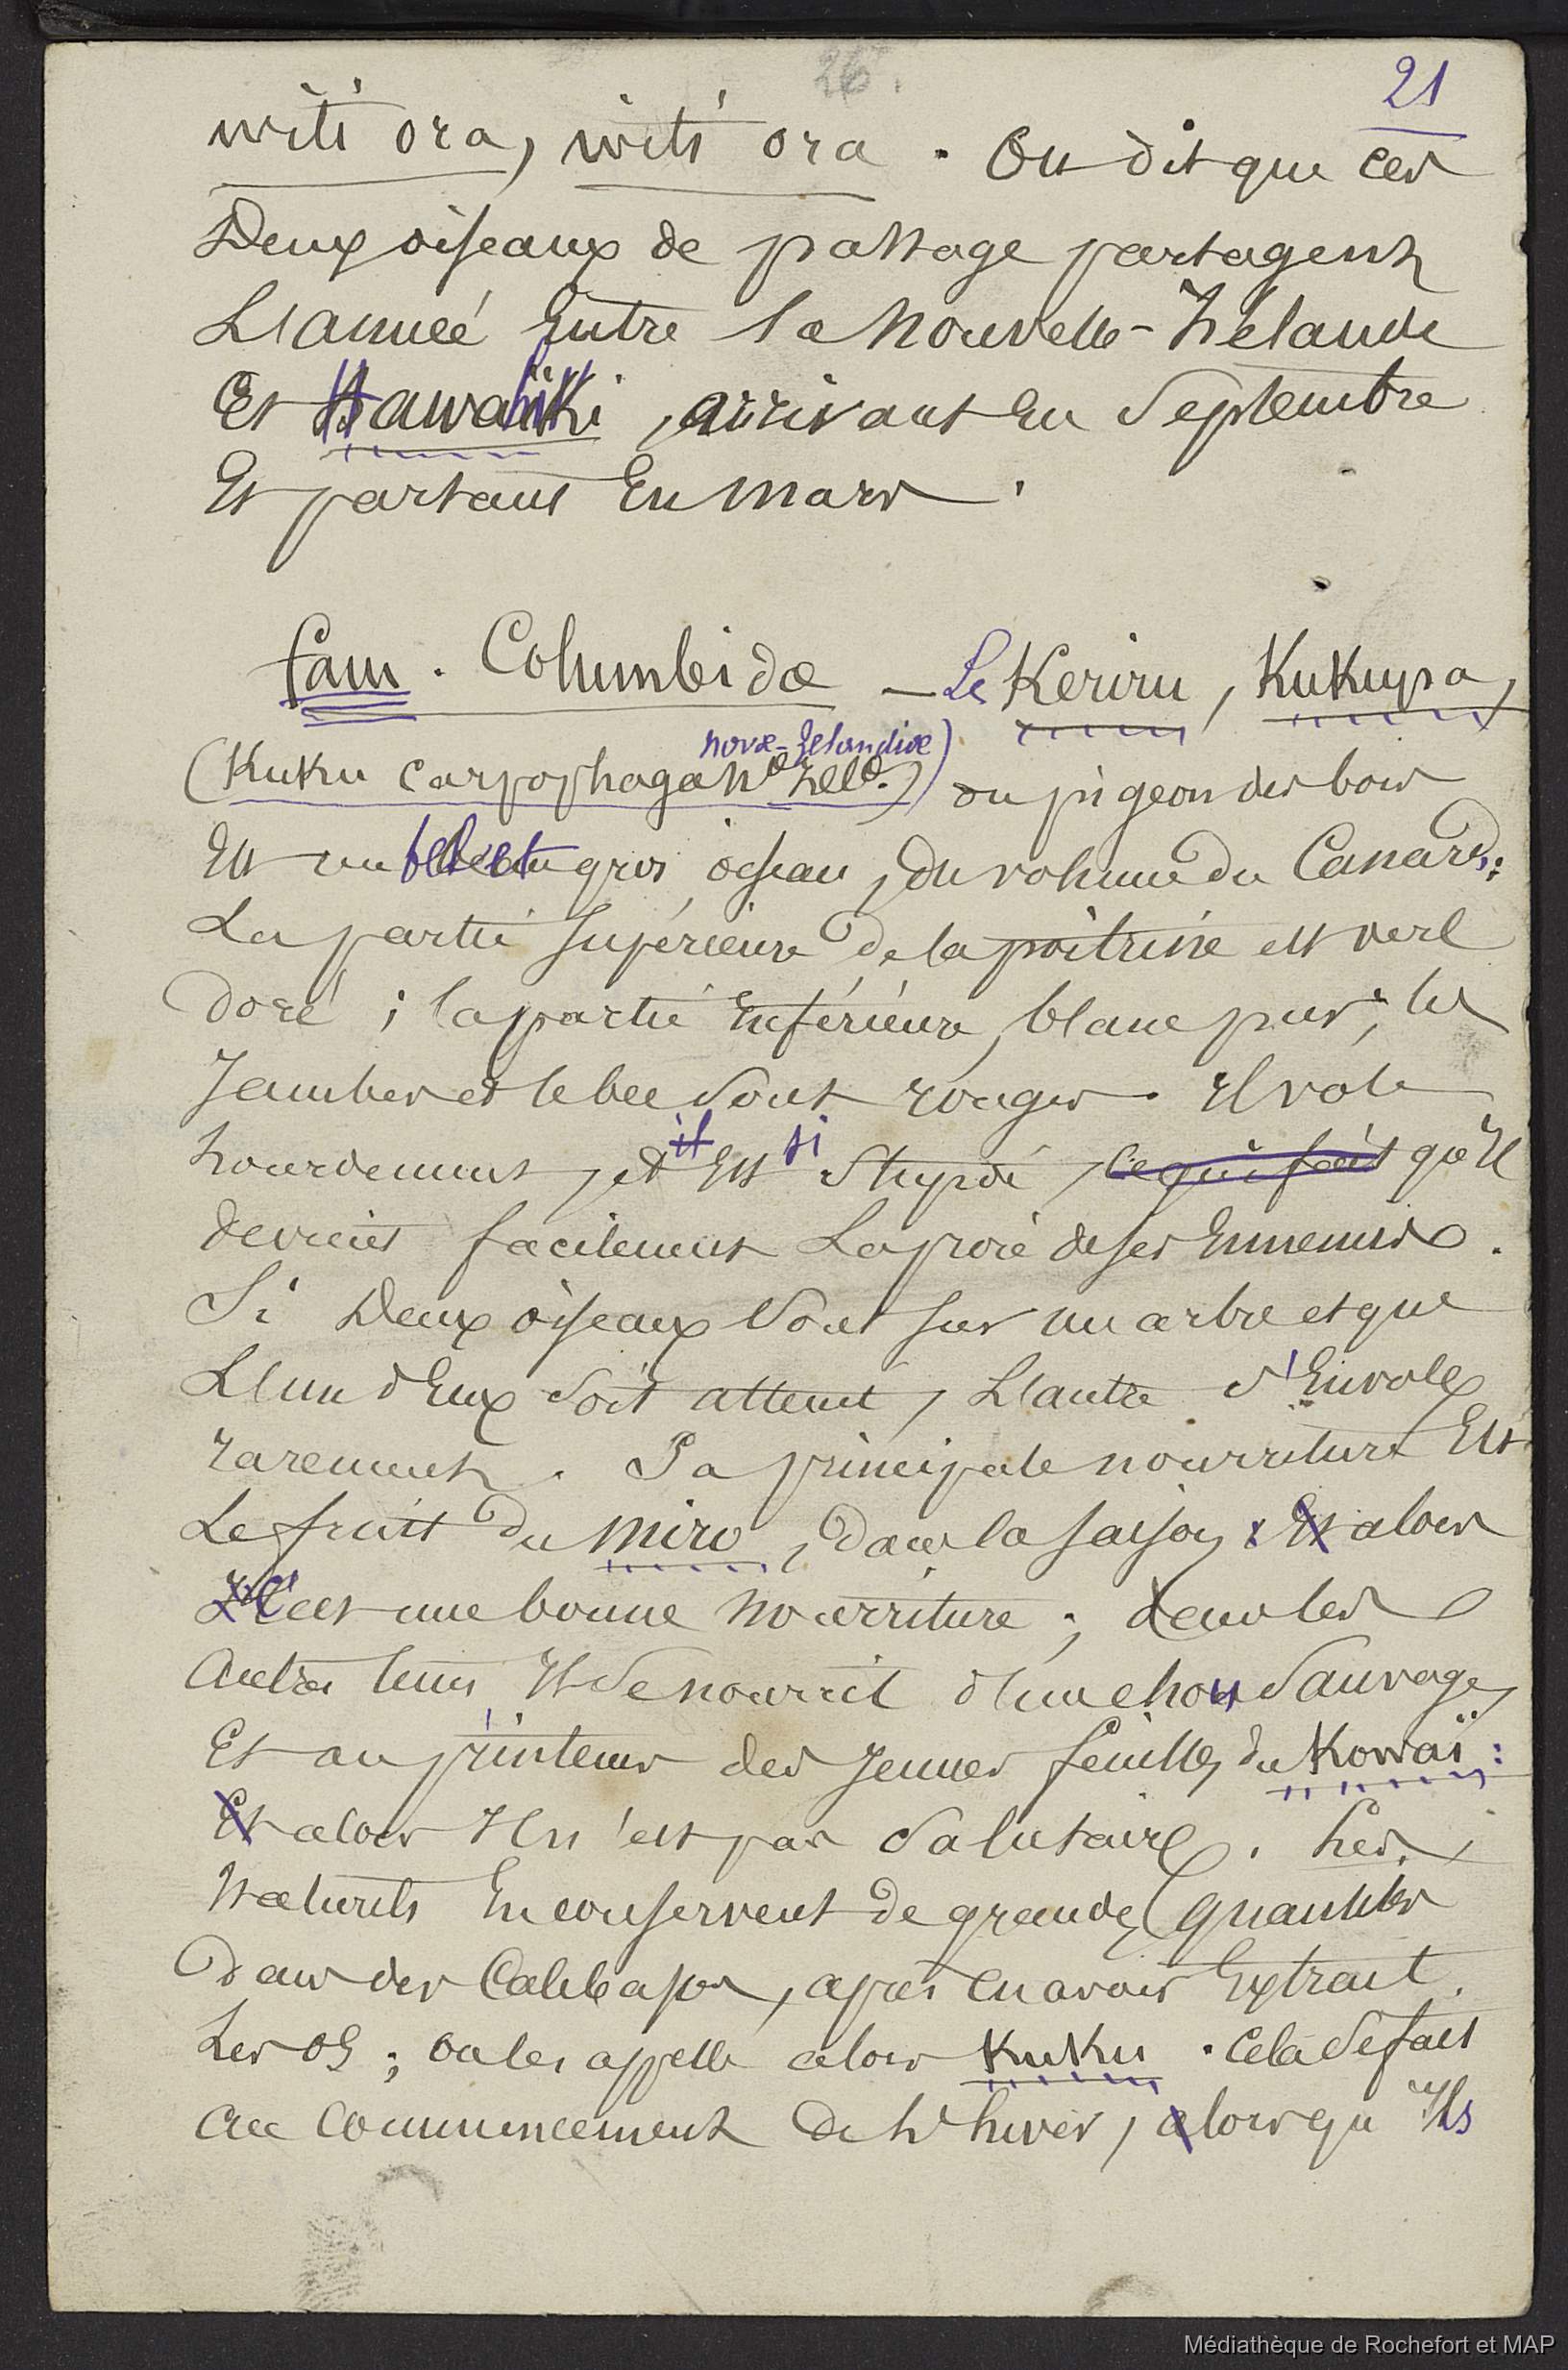 26.
21
witi ora, witi ora. On dit que ces
Deux oiseaux de passage partagent
L'année Entre la Nouvelle-Zélande
Et Hawahiki, arrivant En Septembre
Et partant En Mars.
fam. Columbidæ — Le Keriru, Kukupa,
novæ-Zelandiæ)
(Kuku carpophaga Næ Zelæ.) ou pigeon des bois
Est un bel et gros oiseau, du volume du Canard;
La partie supérieure de la poitrine est vert
doré; la partie Inférieure, blanc pur; les
Jambes et le bec sont rouges. Il vole
il si
Lourdement, et Est Stupide, ce qui fait qu'Il
devient facilement La proie de ses Ennemis.
Si Deux oiseaux Sont sur un arbre et que
L'un d'Eux soit atteint, L'autre s'Envole
rarement. Sa principale nourriture Est
Le fruit du miro, dans la saison; Et alors
C'est une bonne nourriture; dans les
Autres tems Il se nourrit d'un chou Sauvage,
Et au printems des Jeunes feuilles du Kowaï:
Et alors Il n'est pas Salutaire. Les
Naturels En conservent de grandes quantités
Dans des Calebasses, après en avoir Extrait
Les os; on les appelle alors Kuku. Cela se fait
Au Commencement de L'hiver, alors qu'Ils
Médiathèque de Rochefort et MAP